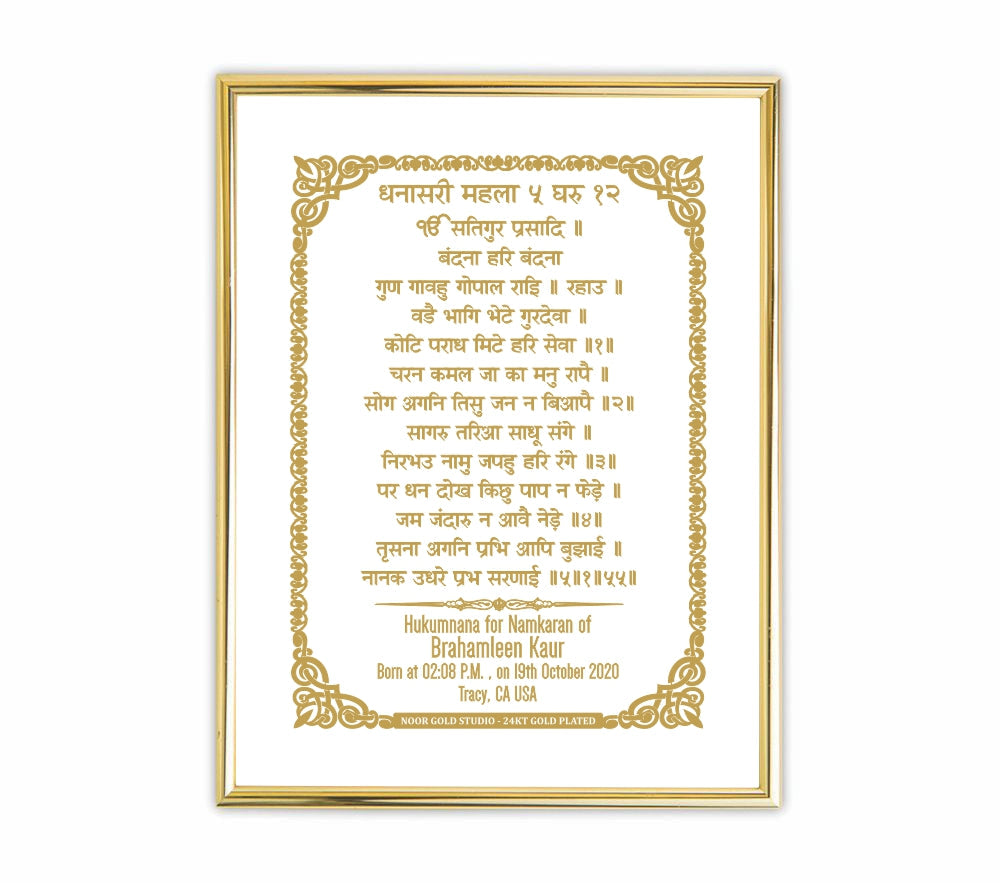 धनासरी महला ५ घरु १२
ੴ सतिगुर प्रसादि ॥
बंदना हरि बंदना
गुण गावहु गोपाल राइि ॥ रहाउ ॥
वडै भागि भेटे गुरदेवा ॥
कोटि पराध मिटे हरि सेवा ॥१॥
चरन कमल जा का मनु रापै ॥
सोग अगनि तिसु जन न बिआपै ॥२॥
सागरु तरिआ साधू संगे ॥
निरभउ नामु जपहु हरि रंगे ॥३॥
पर धन दोख किछु पाप न फेड़े ॥
जम जंदारु न आवै नेड़े ॥४॥
तृसना अगनि प्रभि आपि बुझाई ॥
नानक उधरे प्रभ सरणाई ॥५॥१॥५५॥
Hukumnana for Namkaran of
Brahamleen Kaur
Born at 02:08 P.M. , on 19th October 2020
Tracy, CA USA
NOOR GOLD STUDIO - 24KT GOLD PLATED